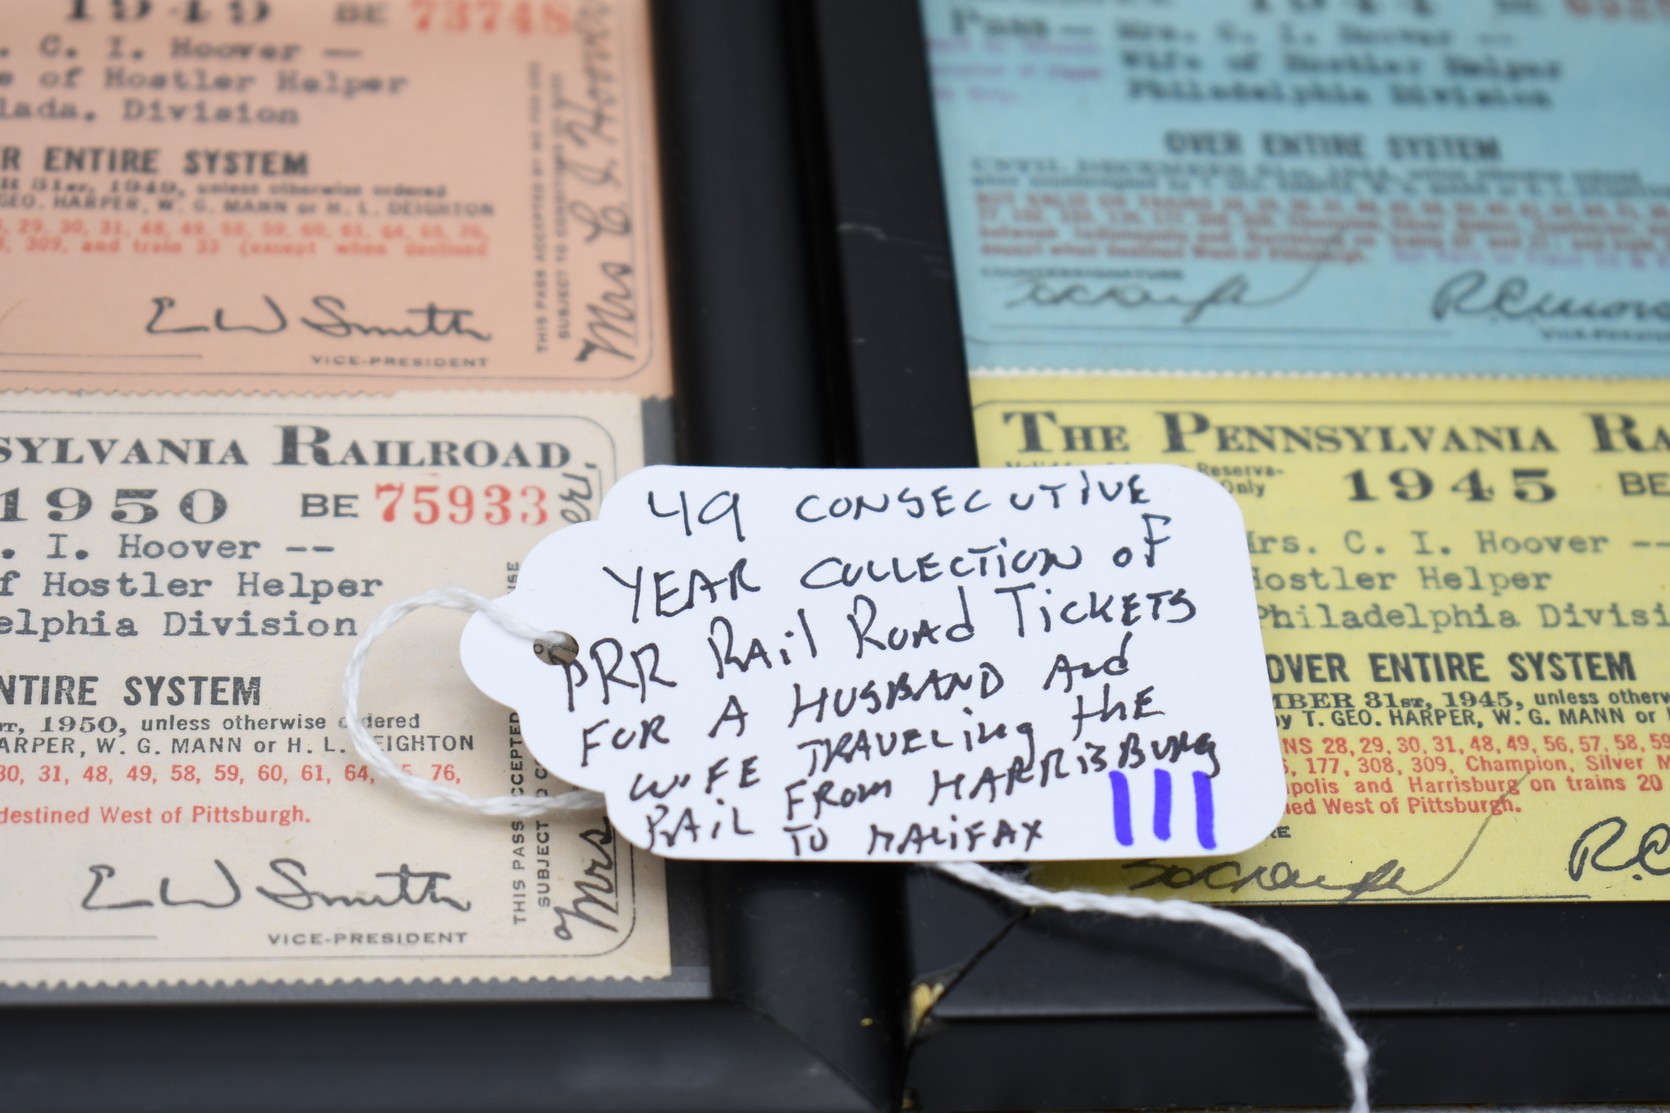 1949 BE 73748
. C. I. Hoover --
e of Hostler Helper
lada. Division
R ENTIRE SYSTEM
R 31st, 1949, unless otherwise ordered
GEO. HARPER, W. G. MANN or H. L. DEIGHTON
, 29, 30, 31, 48, 49, 58, 59, 60, 61, 64, 65, 76,
, 309, and train 33 (except when destined
E W Smith
VICE-PRESIDENT
THIS PASS ACCEPTED BY ME FOR USE
SUBJECT TO CONDITIONS
Mrs C I Hoover
SYLVANIA RAILROAD
1950 BE 75933
. I. Hoover --
f Hostler Helper
elphia Division
NTIRE SYSTEM
st, 1950, unless otherwise ordered
ARPER, W. G. MANN or H. L. DEIGHTON
30, 31, 48, 49, 58, 59, 60, 61, 64, 76,
destined West of Pittsburgh.
E W Smith
VICE-PRESIDENT
THIS PASS ACCEPTED
SUBJECT TO CO
Mrs
1944 BE
Pass-- Mrs. C. I. Hoover --
Wife of Hostler Helper
Philadelphia Division
OVER ENTIRE SYSTEM
UNTIL DECEMBER 31st, 1944, unless otherwise
COUNTERSIGNATURE
VICE-PRESIDE
THE PENNSYLVANIA RA
Reserva-
Only
1945 BE
Mrs. C. I. Hoover --
Hostler Helper
Philadelphia Divisi
OVER ENTIRE SYSTEM
MBER 31st, 1945, unless otherw
by T. GEO. HARPER, W. G. MANN or
NS 28, 29, 30, 31, 48, 49, 56, 57, 58, 59
, 177, 308, 309, Champion, Silver M
polis and Harrisburg on trains 20
ned West of Pittsburgh.
RE
R.C
49 CONSECUTIVE
YEAR COLLECTION OF
PRR RAil ROAd TiCKETS
FOR A HUSBAND And
WIFE TRAVELing thE
RAiL FROM HARRISBURg
TO HALiFAX III